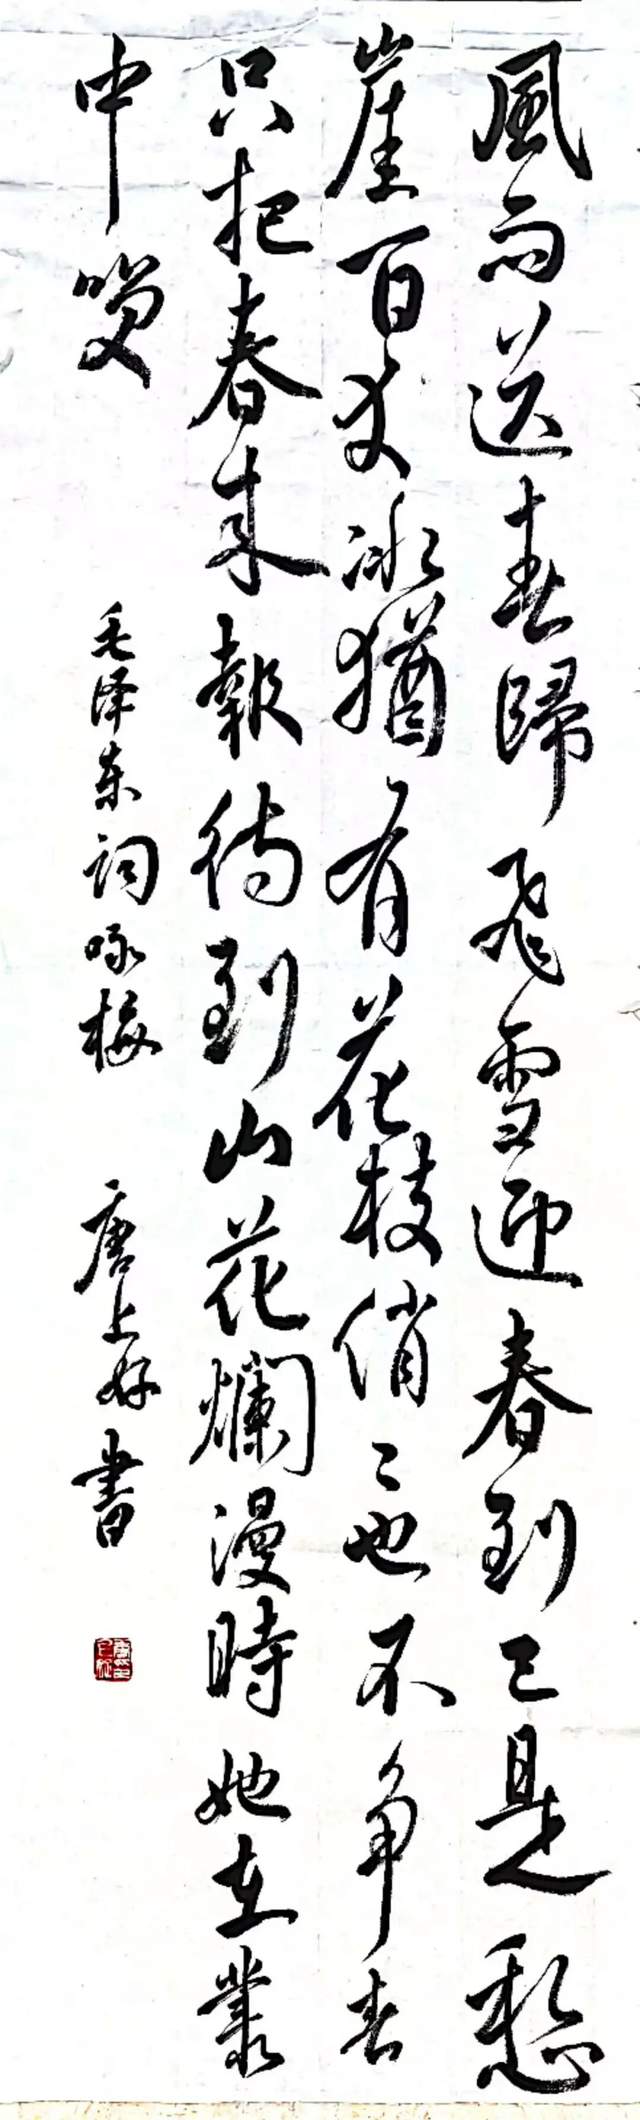 風雨送春歸飛雪迎春到已是懸
崖百丈冰猶有花枝俏〻也不争春
只把春来報待到山花爛漫時她在叢
中咲
毛泽东词咏梅 唐上好書